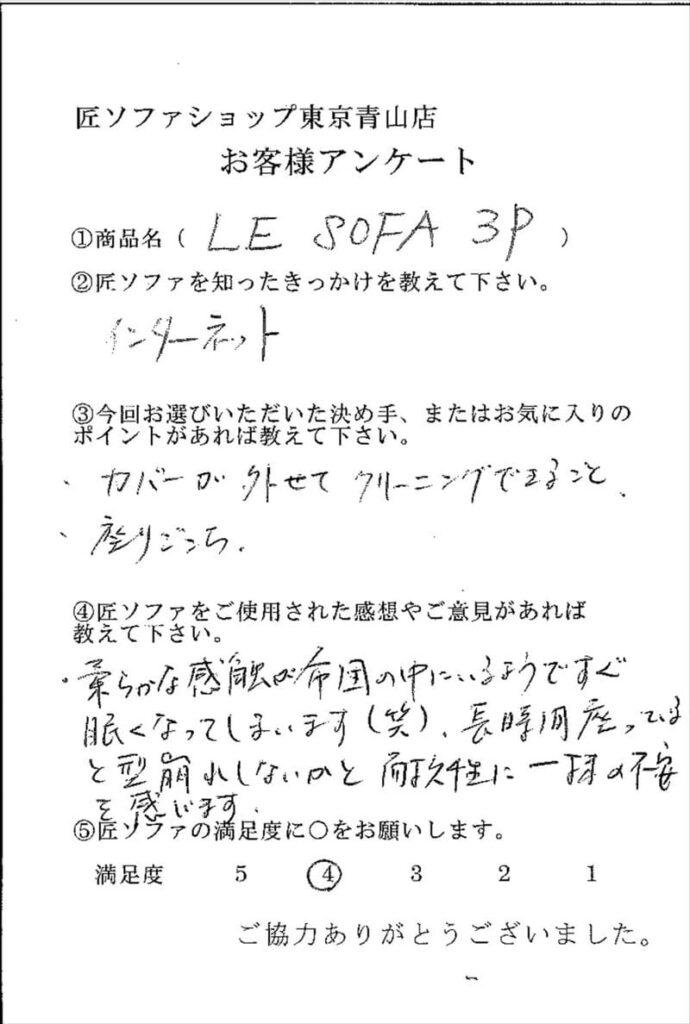 匠ソファショップ東京青山店
お客様アンケート
①商品名（ LE SOFA 3P ）
②匠ソファを知ったきっかけを教えて下さい。
インターネット
③今回お選びいただいた決め手、またはお気に入りの
ポイントがあれば教えて下さい。
・カバーが外せてクリーニングできること、
・座りごこち、
④匠ソファをご使用された感想やご意見があれば
教えて下さい。
・柔らかな感触が布団の中にいるようですぐ
眠くなってしまいます(笑)、長時間座っている
と型崩れしないかと耐久性に一抹の不安
を感じます.
⑤匠ソファの満足度に○をお願いします。
満足度 5 4 3 2 1
ご協力ありがとうございました。